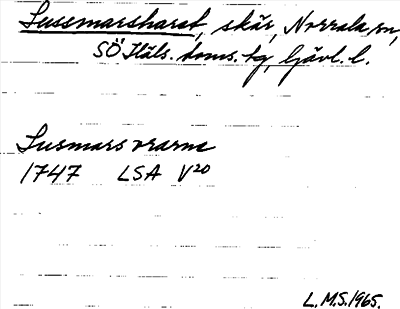 Sussmarsharet, skär, Norrala sn,
SÖ Häls. doms. tg, Gävl. l.
Susmars orarne
1747 LSA V20
L.M.S. 1965.